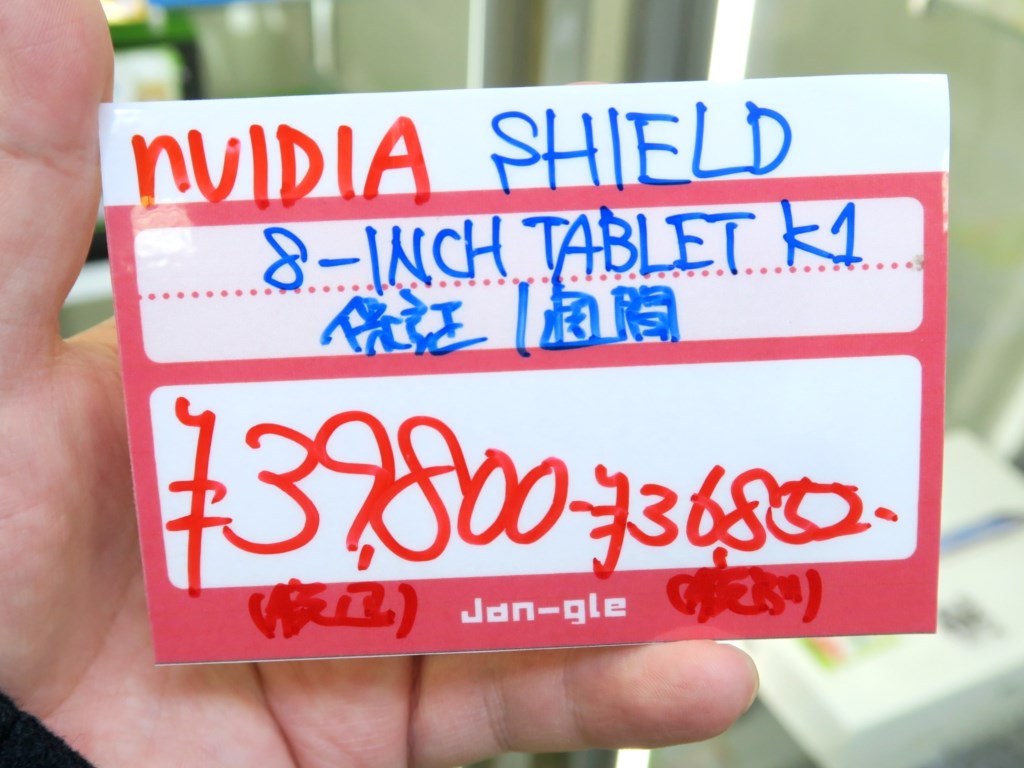 NVIDIA SHIELD
8-INCH TABLET K1
保証 1週間
¥39,800 - ¥36,852-
(税込) Jan-gle (税別)